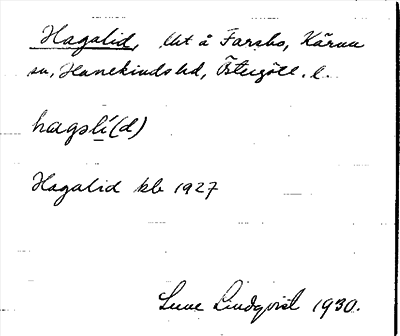 Hagalid, lht å Farsbo, Kärna
sn, Hanekinds hd, Östergötl. l.
hagəli(d)
Hagalid kb 1927
Sune Lindqvist 1930.